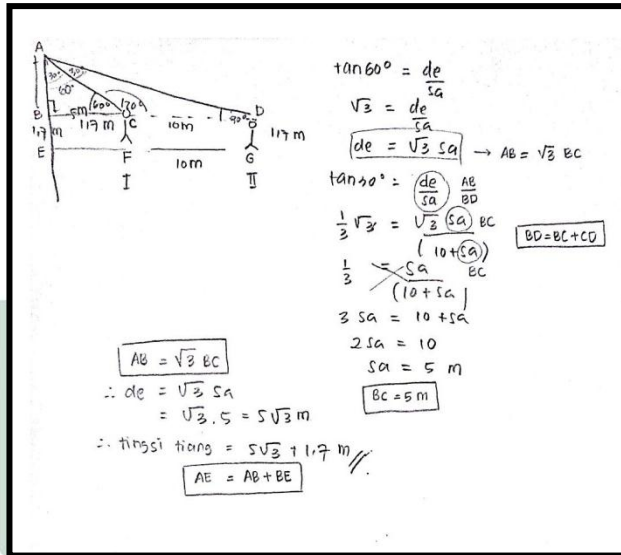 A
30° 30°
60°
B 5m 60° 120° D
1,7 m 1,7 m C 10m 30° 1,7 m
E F 10m G
I II
tan 60° = de/sa
√3 = de/sa
de = √3 sa → AB = √3 BC
tan 30° = de/sa AB/BD
1/3 √3 = √3 sa BC / (10+sa) BD = BC + CD
1/3 = sa BC / (10+sa)
3 sa = 10 + sa
2 sa = 10
sa = 5 m
BC = 5 m
AB = √3 BC
∴ de = √3 sa
= √3 . 5 = 5√3 m
∴ tinggi tiang = 5√3 + 1,7 m //.
AE = AB + BE